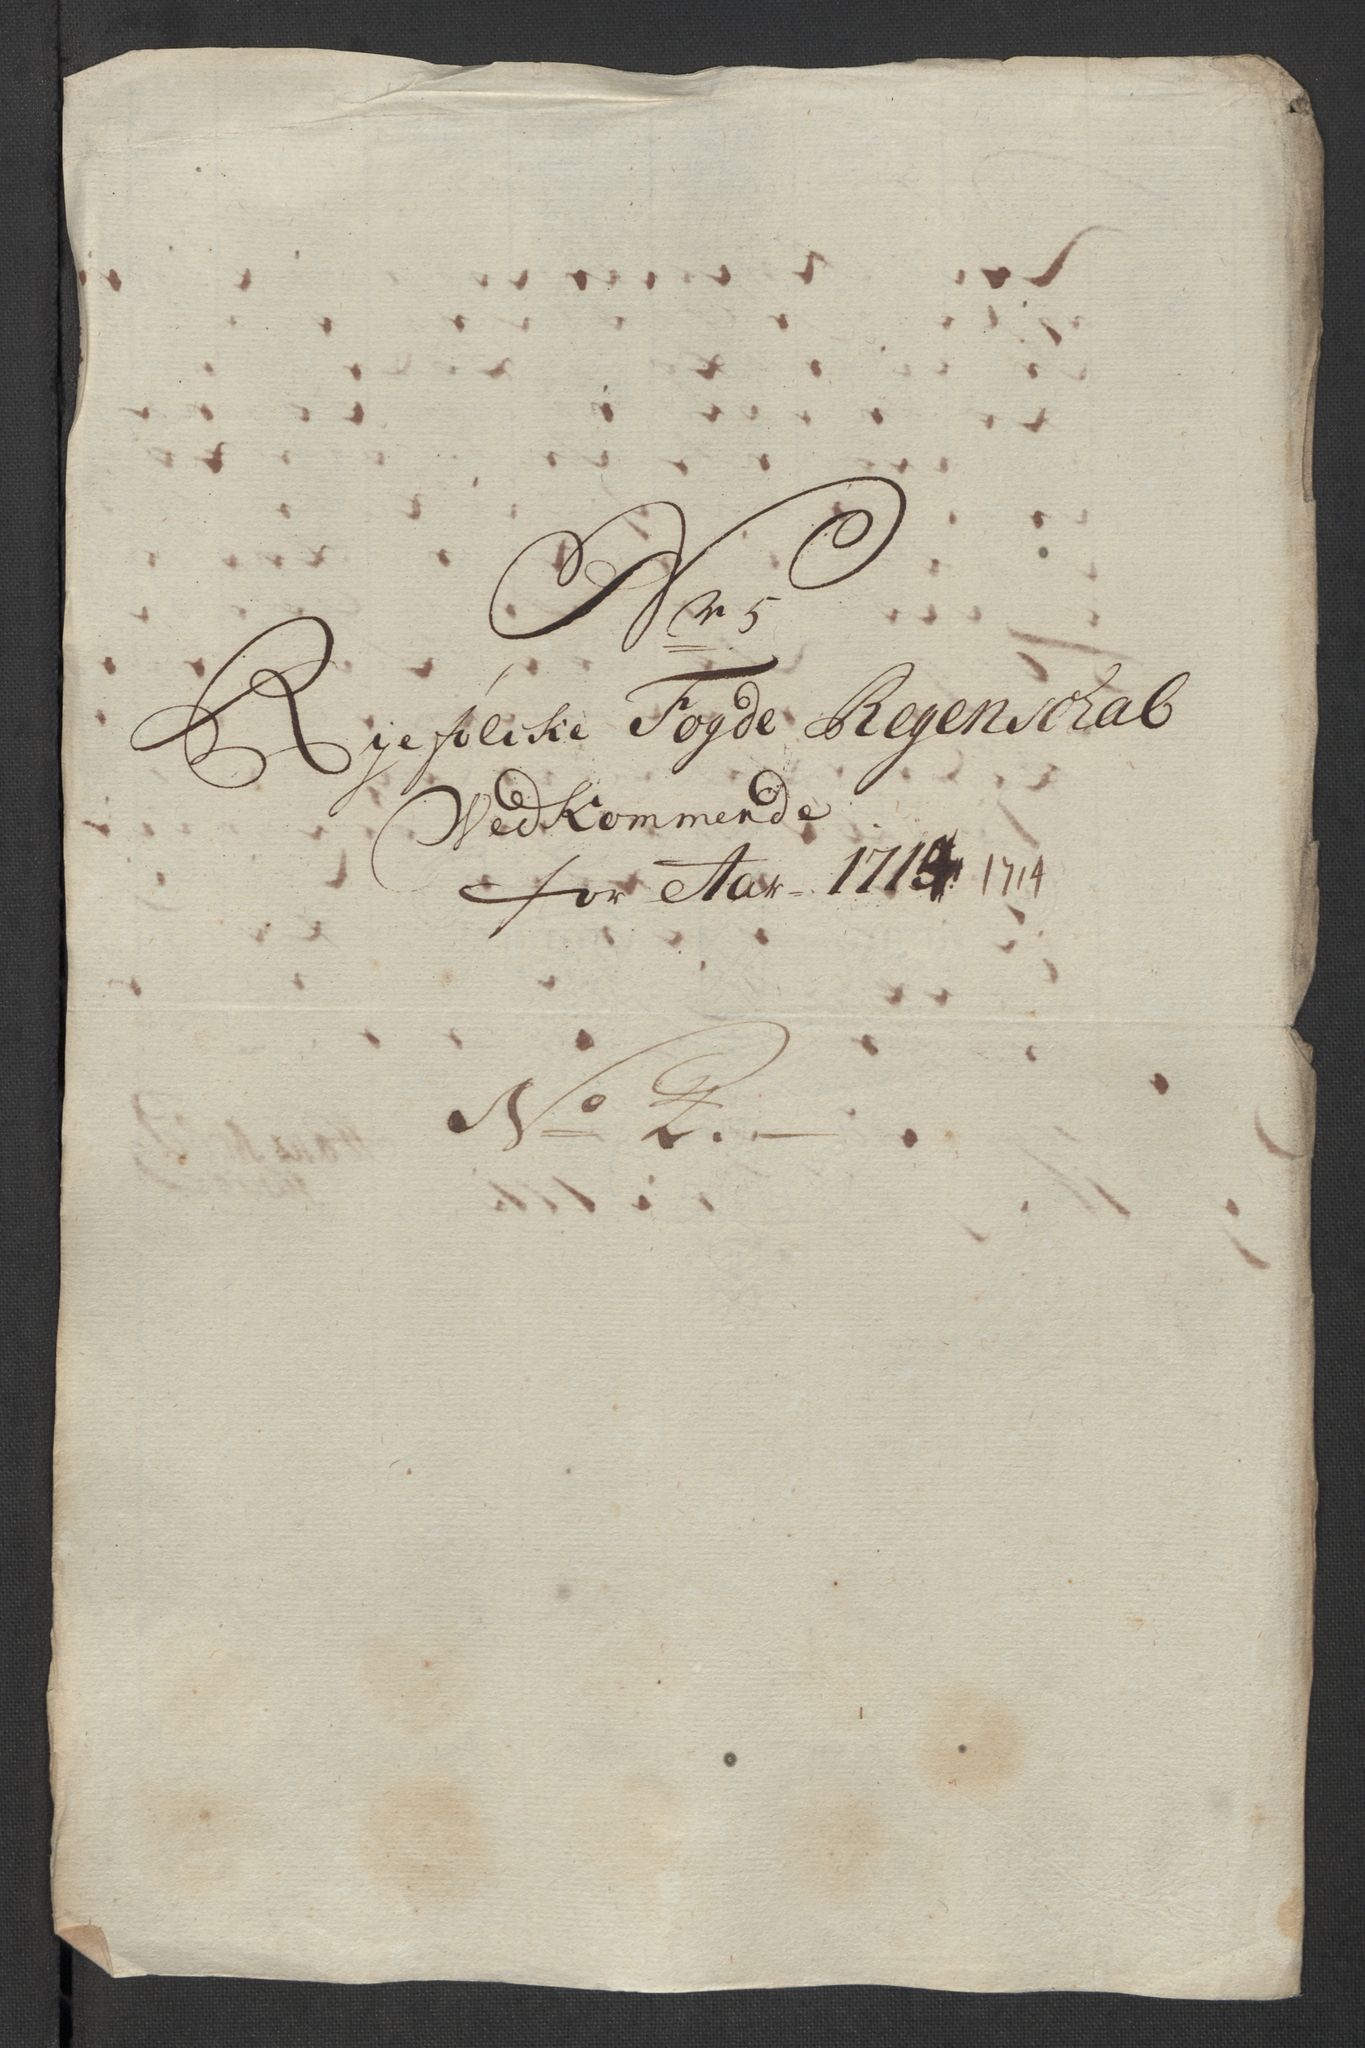 Nr 5
Ryefölcke Fogde Regenschab
Vedkommende
for Aar 1714 1714
No 2.